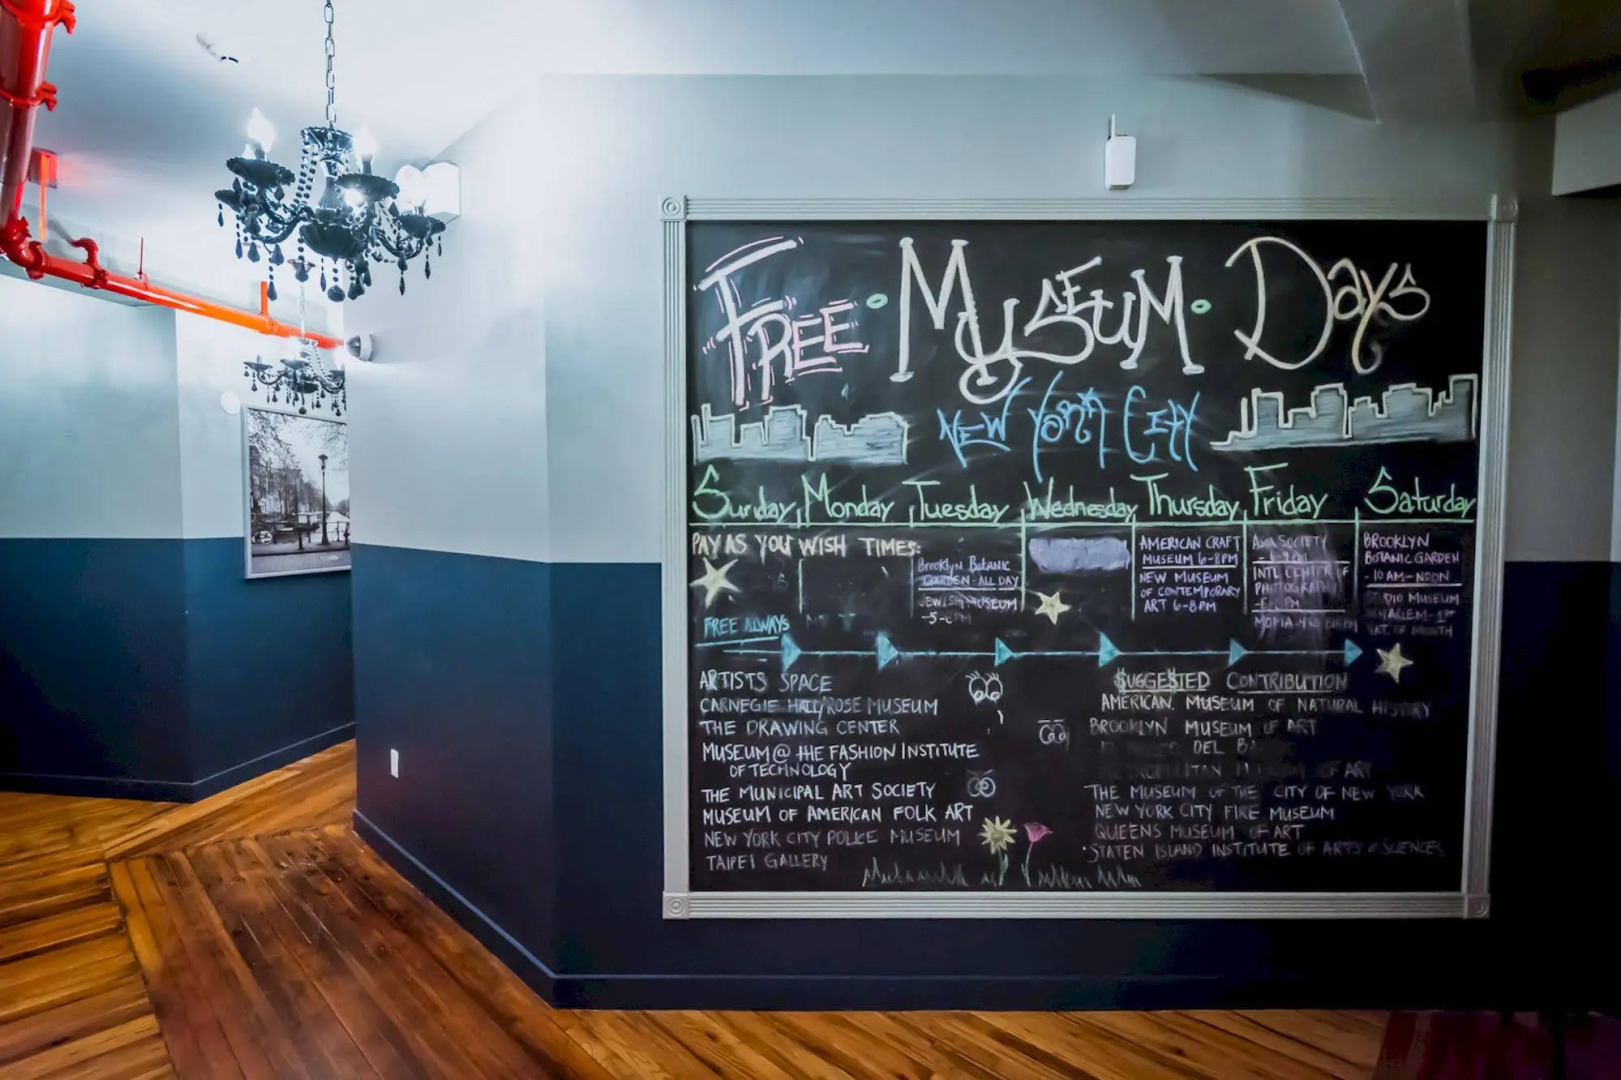 FREE · MUSEUM · DAYS
NEW YORK CITY
Sunday Monday Tuesday Wednesday Thursday Friday Saturday
PAY AS YOU WISH TIMES:
Brooklyn Botanic
GARDEN - ALL DAY
JEWISH MUSEUM
AMERICAN CRAFT
MUSEUM 6-8PM
NEW MUSEUM
OF CONTEMPORARY
ART 6-8PM
ASIA SOCIETY
INT'L CENTER OF
PHOTOGRAPHY
MOMA
BROOKLYN
BOTANIC GARDEN
- 10 AM - NOON
MUSEUM
HARLEM - 1ST
SAT. OF MONTH
FREE ALWAYS
ARTISTS SPACE
CARNEGIE HALL/ROSE MUSEUM
THE DRAWING CENTER
MUSEUM @ THE FASHION INSTITUTE
OF TECHNOLOGY
THE MUNICIPAL ART SOCIETY
MUSEUM OF AMERICAN FOLK ART
NEW YORK CITY POLICE MUSEUM
TAIPEI GALLERY
$UGGE$TED CONTRIBUTION
AMERICAN MUSEUM OF NATURAL HISTORY
BROOKLYN MUSEUM OF ART
DEL
METROPOLITAN MUSEUM OF ART
THE MUSEUM OF THE CITY OF NEW YORK
NEW YORK CITY FIRE MUSEUM
QUEENS MUSEUM OF ART
STATEN ISLAND INSTITUTE OF ARTS & SCIENCES